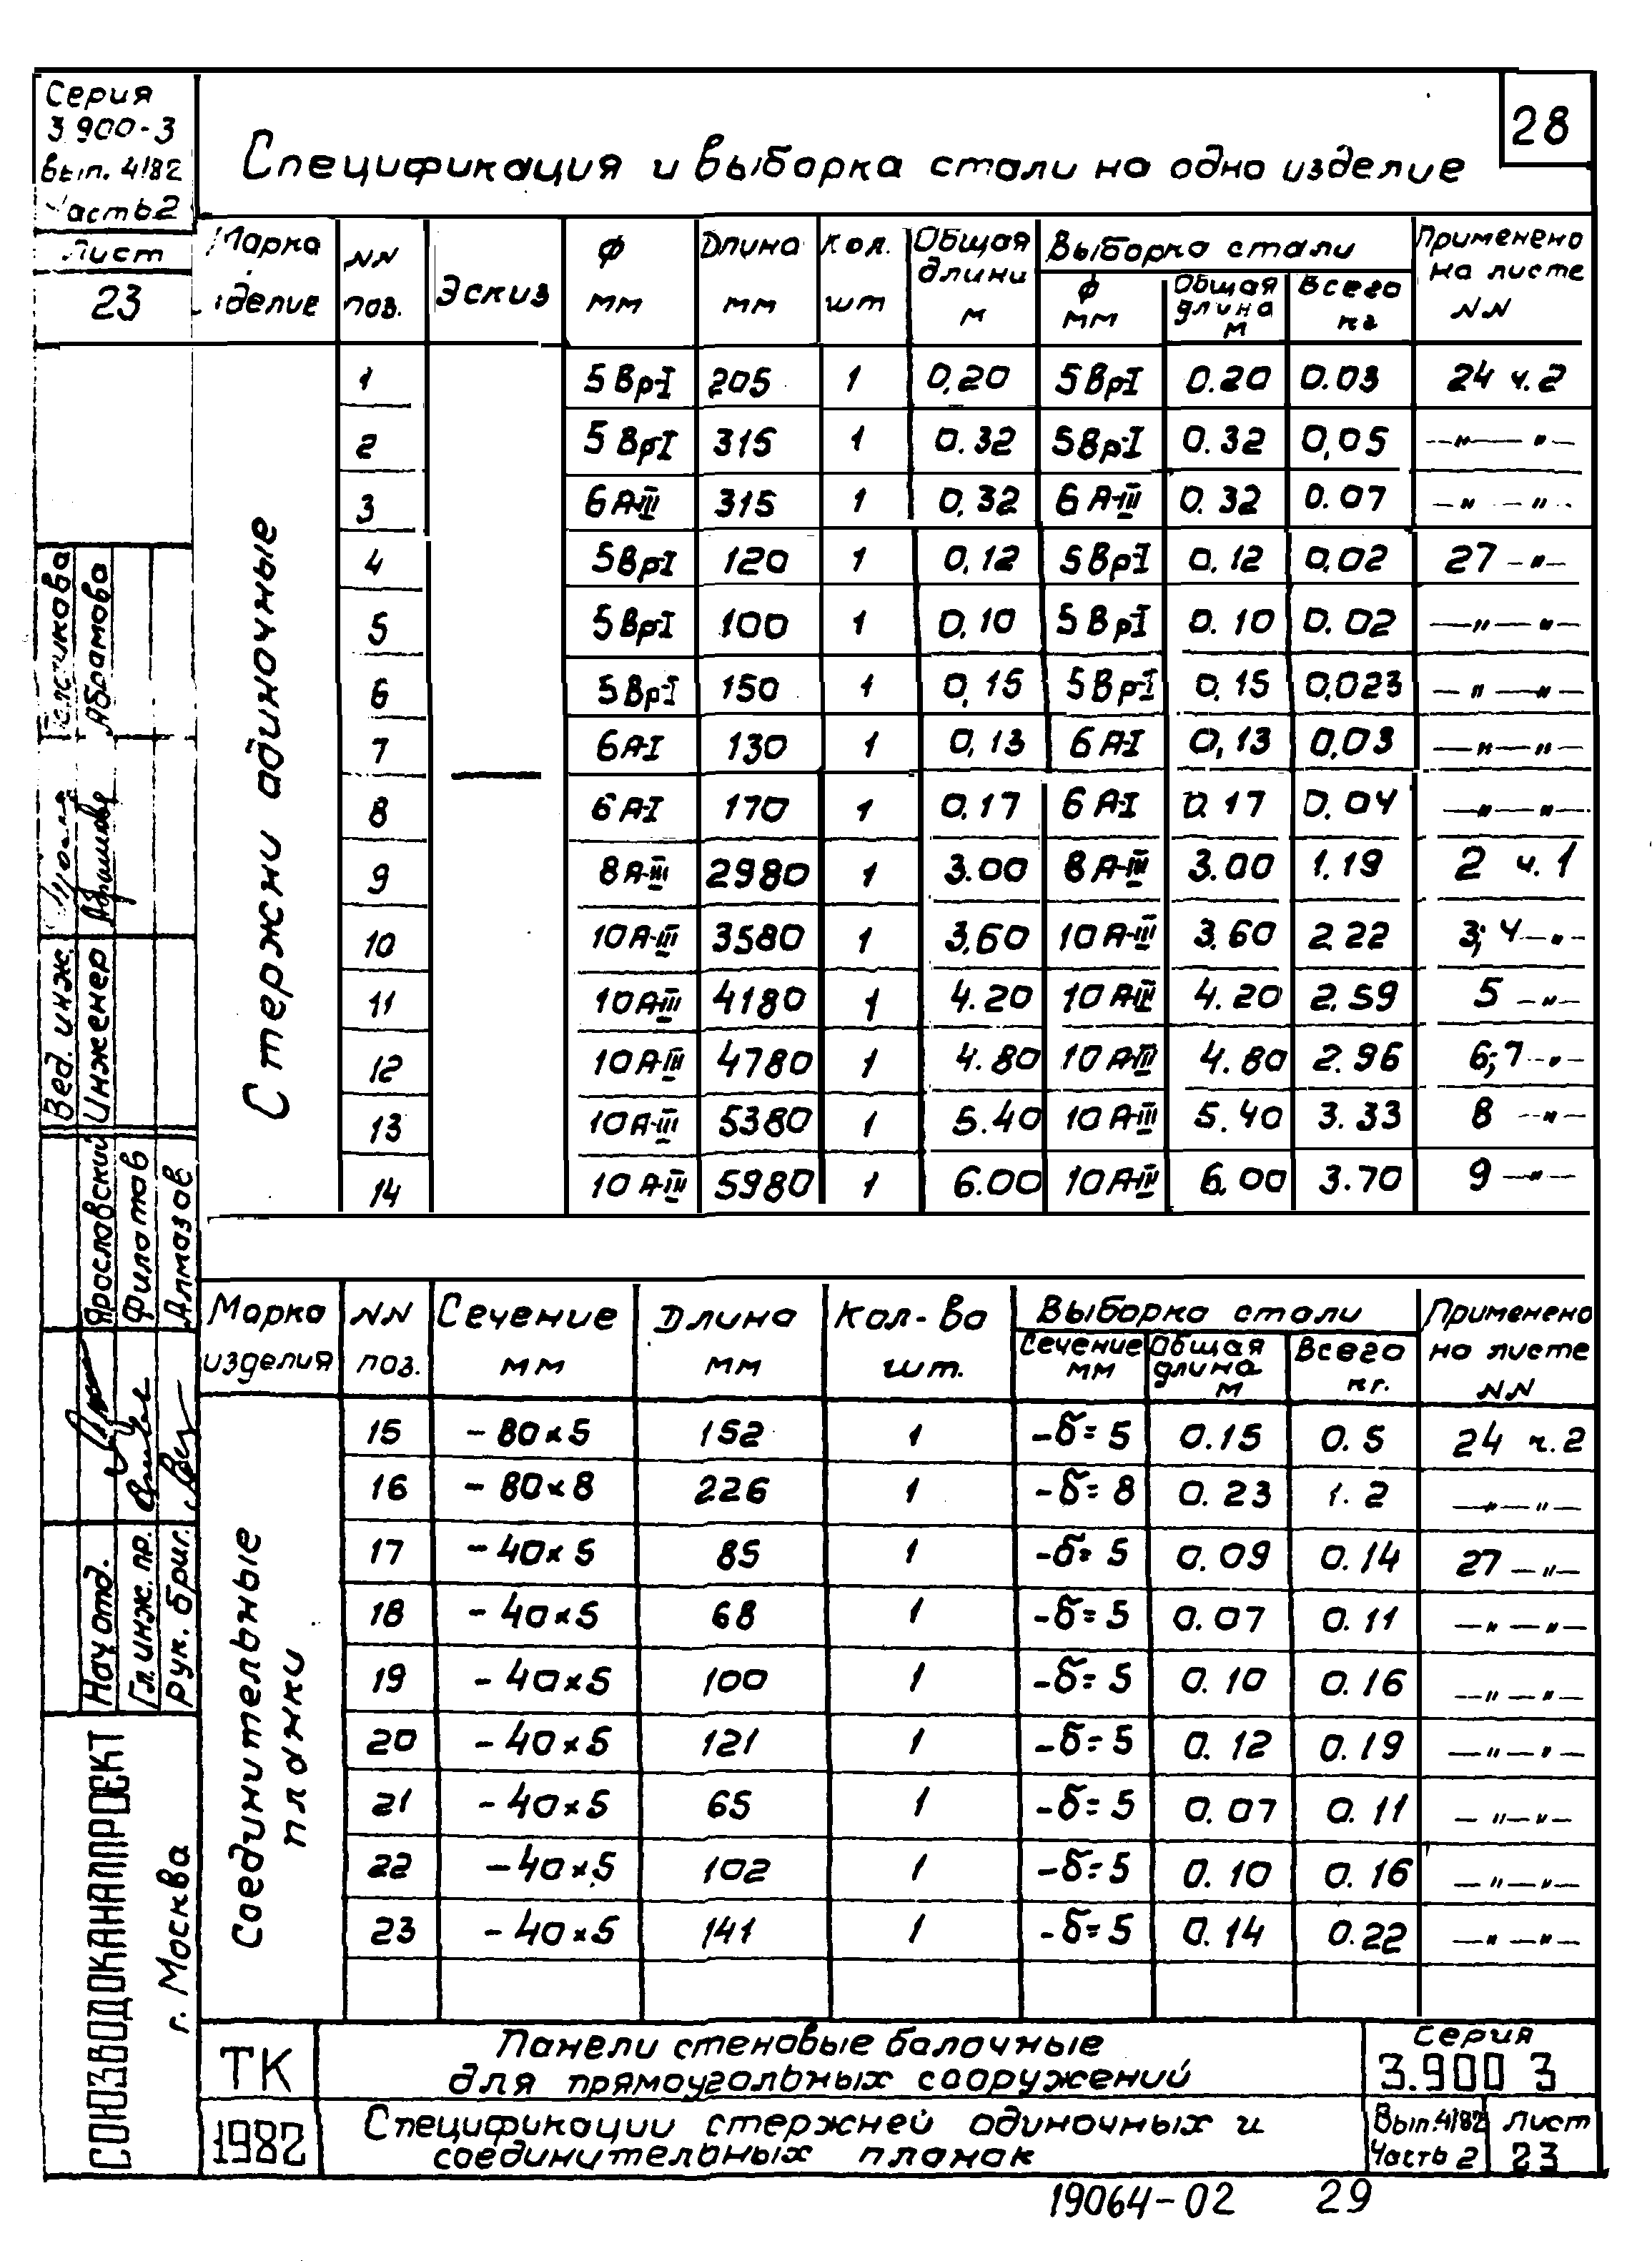 Серия
3.900-3
Вып. 4/82
Часть 2
Лист
23
28
Спецификация и выборка стали на одно изделие
Марка изделие | NN поз. | Эскиз | Ф мм | Длина мм | Кол. шт | Общая длини м | Выборка стали | Применено на листе NN
Ф мм | Общая длина м | Всего кг
Стержни одиночные
1 | 5 Вр-I | 205 | 1 | 0,20 | 5 Вр-I | 0.20 | 0.03 | 24 ч.2
2 | 5 Вр-I | 315 | 1 | 0.32 | 5 Вр-I | 0.32 | 0,05 | —"— "—
3 | 6 А-III | 315 | 1 | 0,32 | 6 А-III | 0.32 | 0.07 | —"— "—
4 | 5 Вр-I | 120 | 1 | 0,12 | 5 Вр-I | 0,12 | 0,02 | 27 —"—
5 | 5 Вр-I | 100 | 1 | 0,10 | 5 Вр-I | 0.10 | 0.02 | —"— "—
6 | 5 Вр-I | 150 | 1 | 0,15 | 5 Вр-I | 0,15 | 0,023 | —"— "—
7 | 6 А-I | 130 | 1 | 0,13 | 6 А-I | 0,13 | 0,03 | —"— "—
8 | 6 А-I | 170 | 1 | 0,17 | 6 А-I | 0.17 | 0.04 | —"— "—
9 | 8 А-III | 2980 | 1 | 3.00 | 8 А-III | 3.00 | 1.19 | 2 ч.1
10 | 10 А-III | 3580 | 1 | 3,60 | 10 А-III | 3.60 | 2.22 | 3; 4 —"—
11 | 10 А-III | 4180 | 1 | 4.20 | 10 А-III | 4.20 | 2.59 | 5 —"—
12 | 10 А-III | 4780 | 1 | 4.80 | 10 А-III | 4.80 | 2.96 | 6; 7 —"—
13 | 10 А-III | 5380 | 1 | 5.40 | 10 А-III | 5.40 | 3.33 | 8 —"—
14 | 10 А-III | 5980 | 1 | 6.00 | 10 А-III | 6.00 | 3.70 | 9 —"—
Марка изделия | NN поз. | Сечение мм | Длина мм | Кол-во шт. | Выборка стали | Применено на листе NN
Сечение мм | Общая длина м | Всего кг.
Соединительные
планки
15 | - 80×5 | 152 | 1 | -δ= 5 | 0.15 | 0.5 | 24 ч.2
16 | - 80×8 | 226 | 1 | -δ= 8 | 0.23 | 1.2 | —"— "—
17 | - 40×5 | 85 | 1 | -δ= 5 | 0.09 | 0.14 | 27 —"—
18 | - 40×5 | 68 | 1 | -δ= 5 | 0.07 | 0.11 | —"— "—
19 | - 40×5 | 100 | 1 | -δ= 5 | 0.10 | 0.16 | —"— "—
20 | - 40×5 | 121 | 1 | -δ= 5 | 0.12 | 0.19 | —"— "—
21 | - 40×5 | 65 | 1 | -δ= 5 | 0.07 | 0.11 | —"— "—
22 | - 40×5 | 102 | 1 | -δ= 5 | 0.10 | 0.16 | —"— "—
23 | - 40×5 | 141 | 1 | -δ= 5 | 0.14 | 0.22 | —"— "—
Вед. инж.
Инженер Абрамова
Нач отд. Ярославский
Гл. инж. пр. Филатов
Рук. бриг. Алмазов
СОЮЗВОДОКАНАЛПРОЕКТ
г. Москва
ТК
1982
Панели стеновые балочные
для прямоугольных сооружений
Спецификации стержней одиночных и
соединительных планок
Серия
3.900 3
Вып. 4/82
Часть 2
Лист
23
19064-02 29